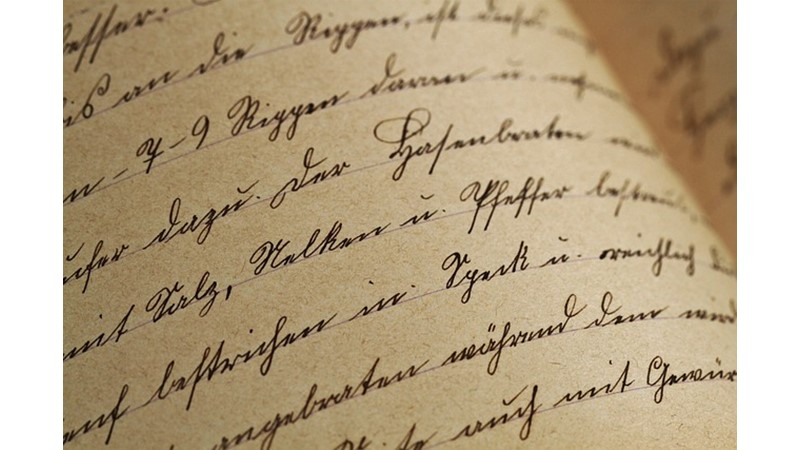 besser.
bis an die Rippen, ist dieses
n - 7 - 9 Rippen daran u.
ufer dazu. Der Hasenbraten
mit Salz, Nelken u. Pfeffer bestreu
enf bestrichen in Speck u. reichlich
angebraten während dem wird
te auch mit Gewür